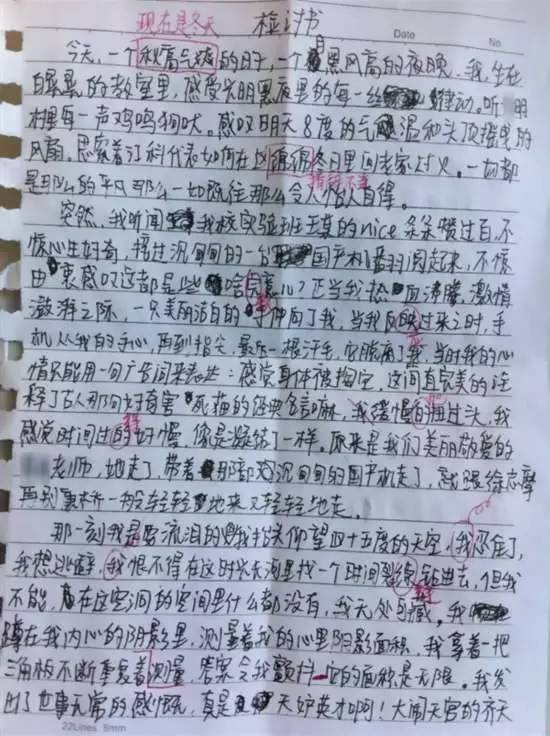 现在是冬天
检讨书
Date
No
今天,一个秋高气爽的日子,一个月黑风高的夜晚,我坐在
的教室里,感受光明黑夜里的每一丝律动。听 明
村里每一声鸡鸣狗吠。感叹明天8度的气温和头顶摇晃的
风扇。思索着江科代表如何在凶 冬日里回老家过 。一切都
是那么的平凡那么一如既往那么令人怡人自得。
突然,我听闻我校实验班王某的nice条条赞过百,不
恨心生好奇,摇过沉甸甸的一台国产机番羽阅起来,不惊
由衷感叹这都是些啥 意儿?正当我热血沸腾,激情
澎湃之际,一只美丽洁白的手伸向了我,当我反映过来之时,手
机从我的手心,再到指尖,最后一根汗毛,它脱离了我,当时我的心
情只能用一句广告词来表达:感觉身体被掏空,这简直完美的诠
释了古人那句好奇害死猫的经典名言嘛,我缓慢的扭过头,我
感觉时间过的好慢,像是凝结了一样。原来是我们美丽敬爱的
老师,她走了,带着那部沉甸甸的国产机走了,就跟徐志摩
再别康桥一般轻轻地来又轻轻地走。
那一刻我是要流泪的 抬头仰望四十五度的天空,我忍住了,
我想逃避,我恨不得在这时光长河里找一个时间裂缝钻进去,但我
不能,在这空洞的空间里什么都没有,我无处 藏。我
蹲在我内心的阴影里,测量着我的心里阴影面积,我拿着一把
三角板不断重复着测量,答案令我颤抖,它的面积是无限。我发
出了世事无常的感慨,真是天妒英才啊!大闹天宫的齐天
22Lines 8mm